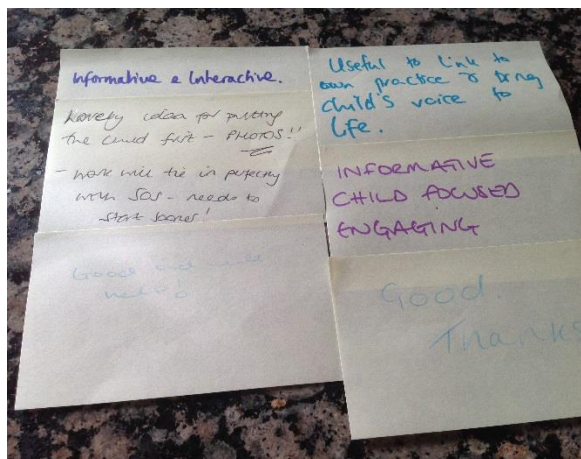 Informative & Interactive.
Lovely idea for putting
the child first - PHOTOS!!
- work will tie in perfectly
with SOS - needs to
start sooner!
Good and
Useful to link to
own practice & bring
child's voice to
life.
INFORMATIVE
CHILD FOCUSED
ENGAGING
Good.
Thanks